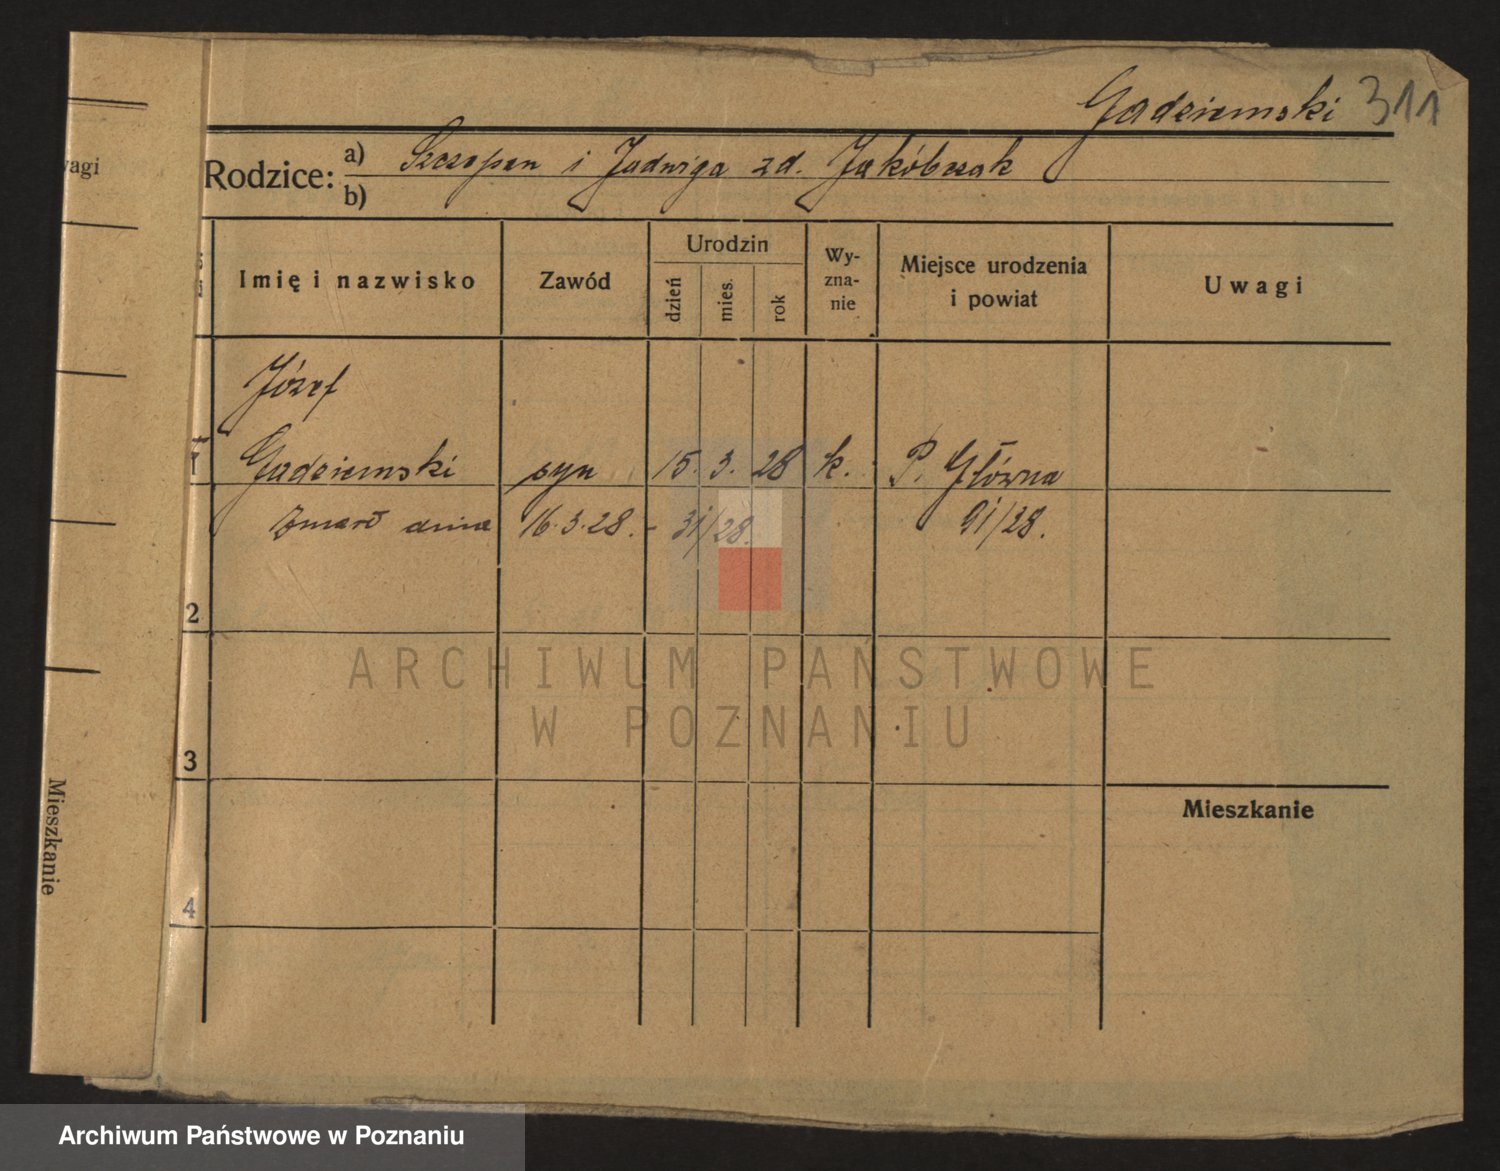 Gadziemski 311
Rodzice: a) Szczepan i Jadwiga zd. Jakóbczak
b)
wagi
Imię i nazwisko
Zawód
Urodzin
dzień
mies.
rok
Wy-
zna-
nie
Miejsce urodzenia
i powiat
Uwagi
Józef
1 Gadziemski syn 15. 3. 28 k. P. Główna
zmarł dnia 16.3.28. - 31/28. 91/28.
2
ARCHIWUM PAŃSTWOWE
W POZNANIU
3
Mieszkanie
Mieszkanie
4
Archiwum Państwowe w Poznaniu